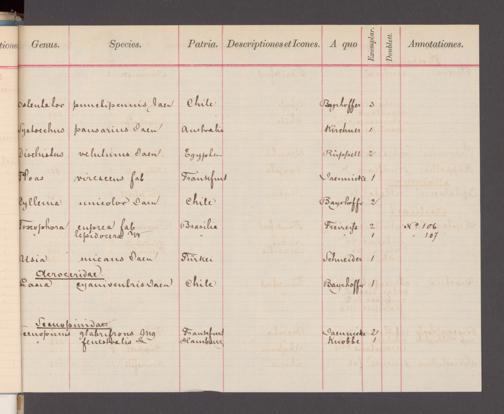 Genus. Species. Patria. Descriptiones et Icones. A quo Exemplar. Doublett. Annotationes.
Chile Bayrhoffer 3
Systoechus Jaen Australia Kirchner 1
velutinus Jaen Egypten Rüppell 2
Ploas virescens fab Frankfurt Jaennicke 1
Cyllenia unicolor Jaen Chile Bayrhoffer 2
Toxophora cuprea fab Brasilia Freireiss 2 No. 106
lepidocera W 1 " 107
Usia micans Jaen Türkei Schneider 1
Acroceridae
Lasia cyaniventris Jaen Chile Bayrhoffer 1
Scenopinidae
Scenopinus glabrifrons Mg Frankfurt Jaennicke 2
" fenestralis L Hamburg Knobbe 1